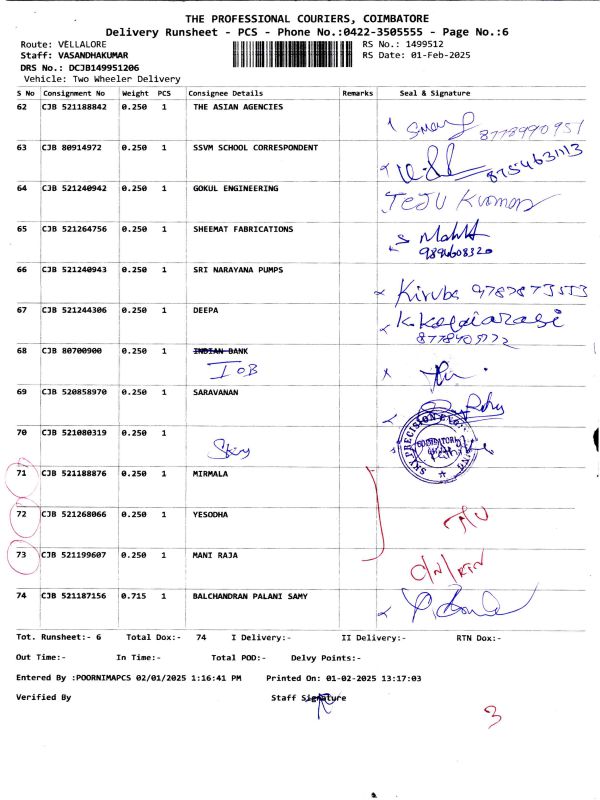 THE PROFESSIONAL COURIERS, COIMBATORE
Delivery Runsheet - PCS - Phone No.:0422-3505555 - Page No.:6
Route: VELLALORE
RS No.: 1499512
Staff: VASANDHAKUMAR
RS Date: 01-Feb-2025
DRS No.: DCJB149951206
Vehicle: Two Wheeler Delivery
S No Consignment No Weight PCS Consignee Details Remarks Seal & Signature
62 CJB 521188842 0.250 1 THE ASIAN AGENCIES
8778990951
63 CJB 80914972 0.250 1 SSVM SCHOOL CORRESPONDENT
8754631113
64 CJB 521240942 0.250 1 GOKUL ENGINEERING
TeJU Kumar
65 CJB 521264756 0.250 1 SHEEMAT FABRICATIONS
9894608320
66 CJB 521240943 0.250 1 SRI NARAYANA PUMPS
Kiruba
67 CJB 521244306 0.250 1 DEEPA
68 CJB 80700900 0.250 1 INDIAN BANK
IOB
69 CJB 520858970 0.250 1 SARAVANAN
70 CJB 521080319 0.250 1
Sky
SKY PRECISION
COIMBATORE
71 CJB 521188876 0.250 1 MIRMALA
72 CJB 521268066 0.250 1 YESODHA
73 CJB 521199607 0.250 1 MANI RAJA
C/N/RTN
74 CJB 521187156 0.715 1 BALCHANDRAN PALANI SAMY
Tot. Runsheet:- 6 Total Dox:- 74 I Delivery:- II Delivery:- RTN Dox:-
Out Time:- In Time:- Total POD:- Delvy Points:-
Entered By :POORNIMAPCS 02/01/2025 1:16:41 PM Printed On: 01-02-2025 13:17:03
Verified By Staff Signature
3